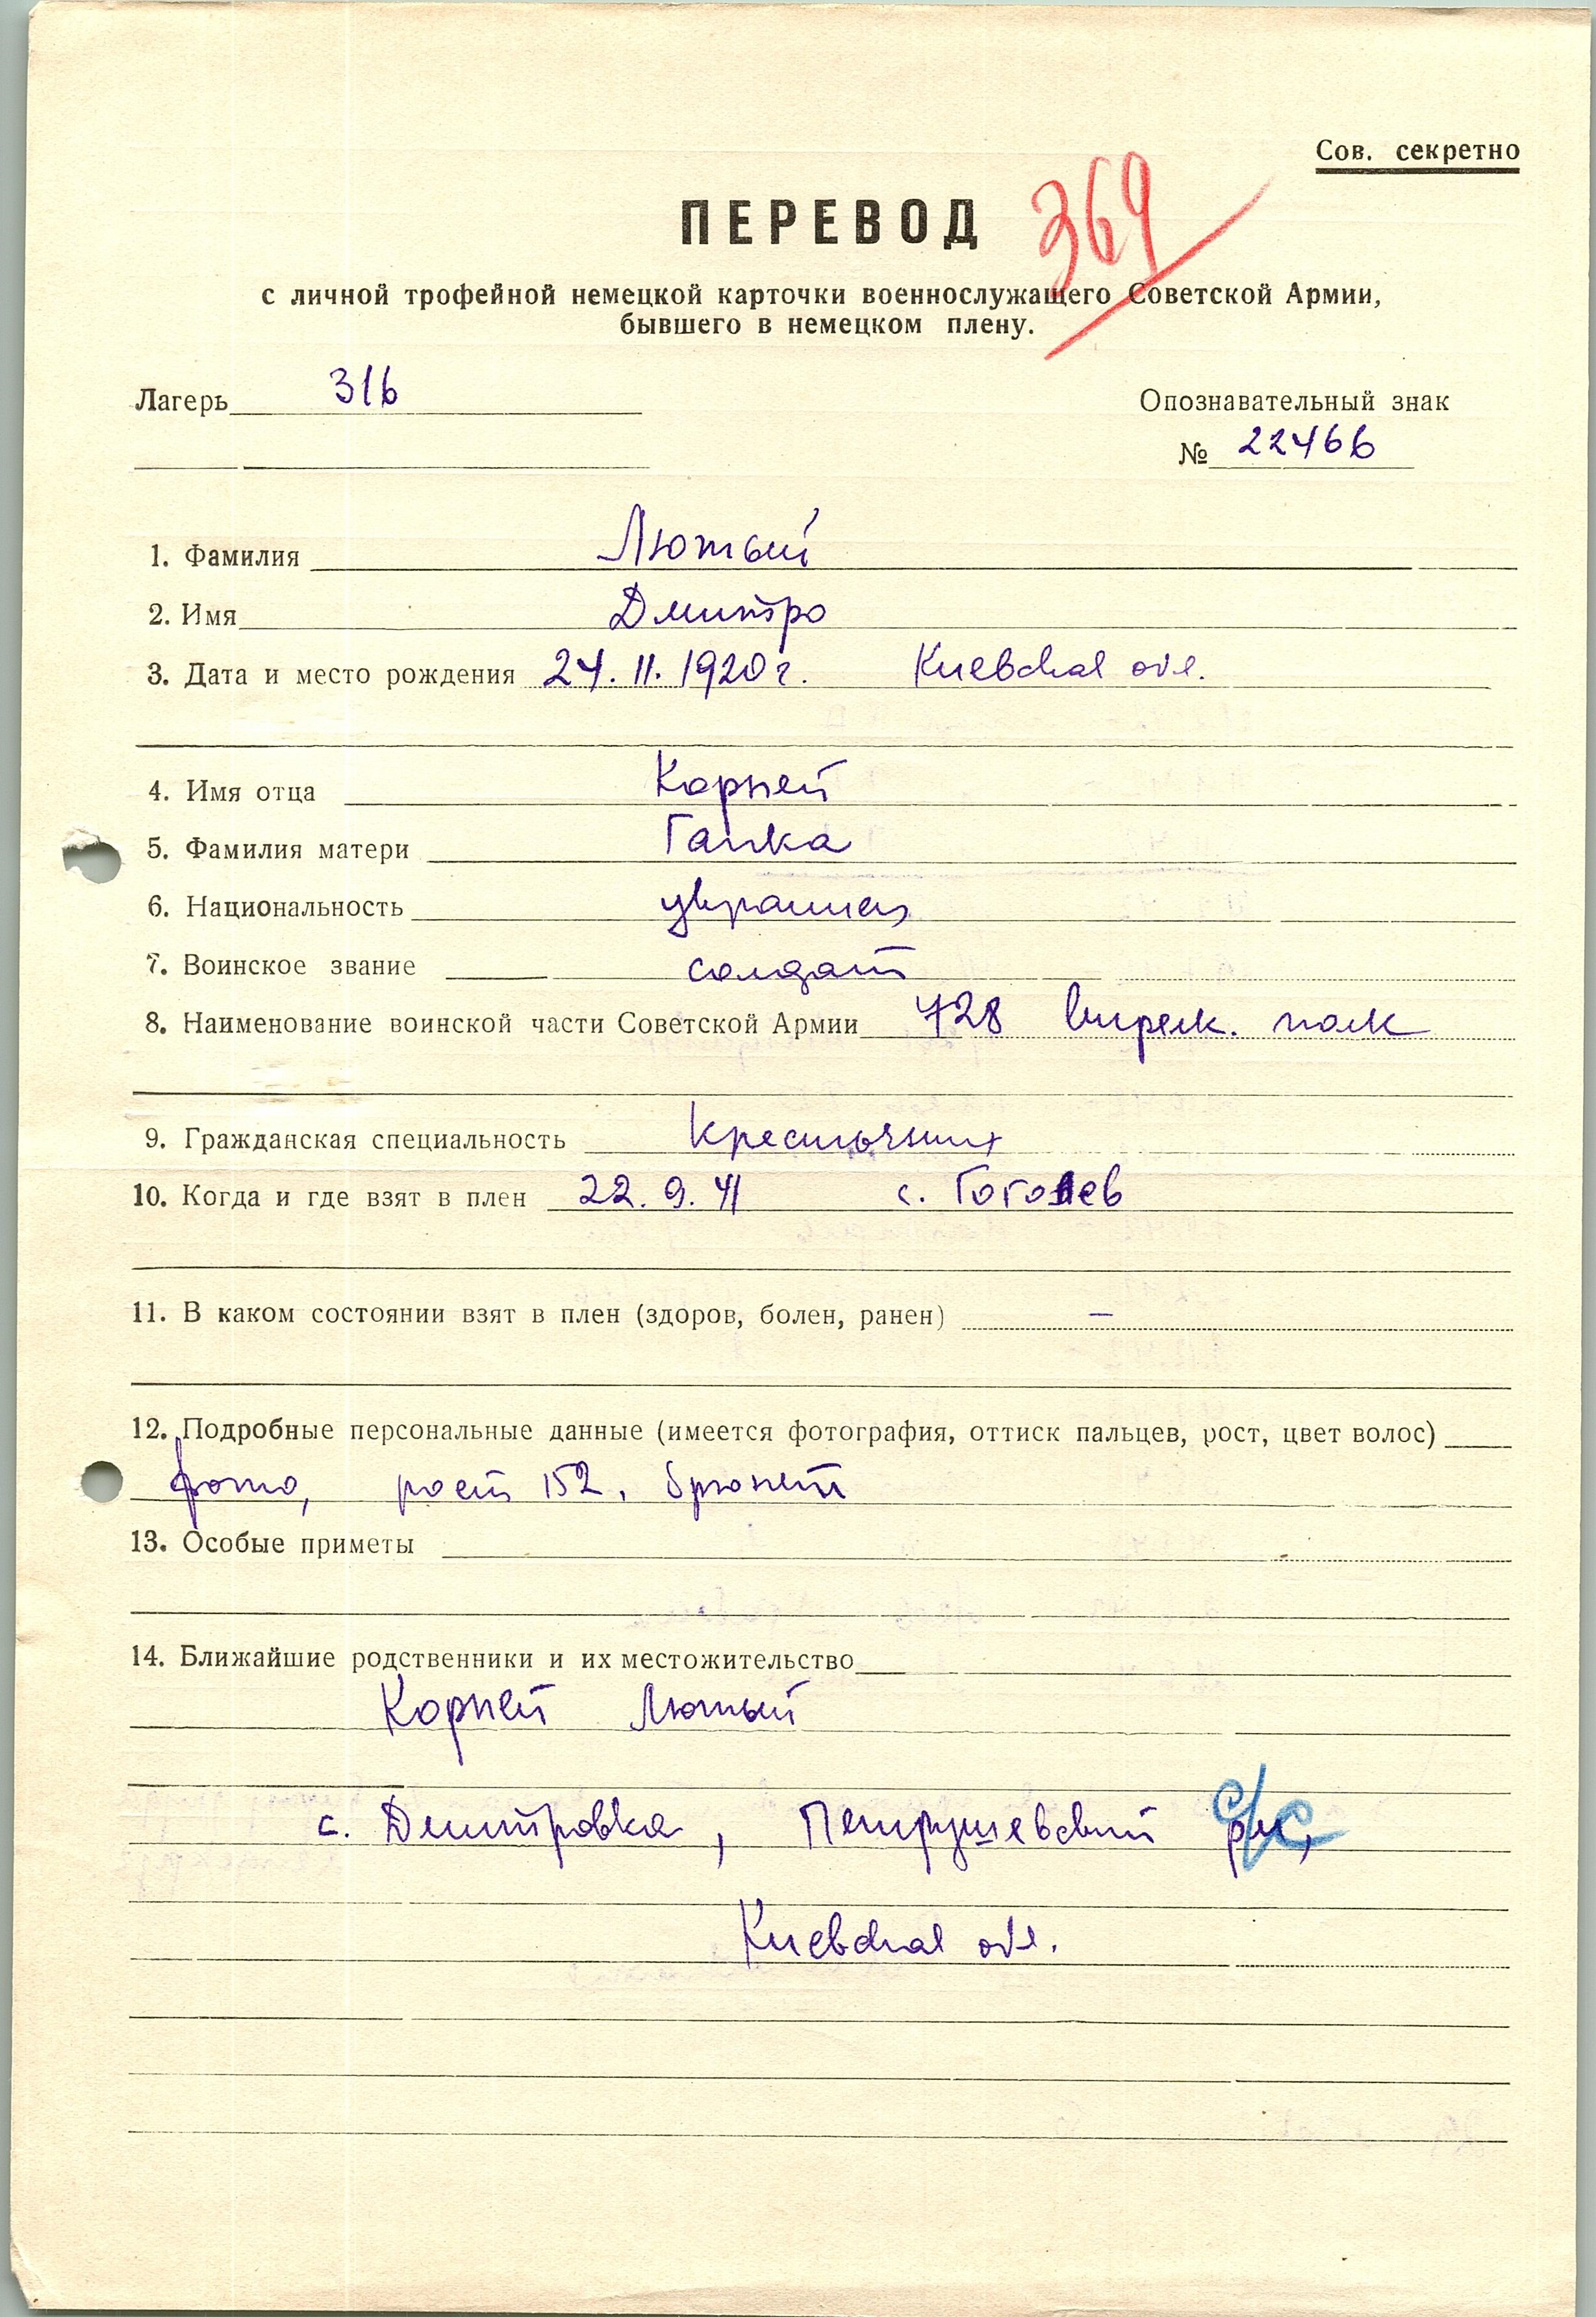 Сов. секретно
ПЕРЕВОД
369
с личной трофейной немецкой карточки военнослужащего Советской Армии,
бывшего в немецком плену.
Лагерь 316
Опознавательный знак
№ 22466
1. Фамилия Лютый
2. Имя Дмитро
3. Дата и место рождения 24. 11. 1920 г. Киевская обл.
4. Имя отца Корней
5. Фамилия матери Гапка
6. Национальность украинец
7. Воинское звание солдат
8. Наименование воинской части Советской Армии 728 стрелк. полк
9. Гражданская специальность крестьянин
10. Когда и где взят в плен 22. 9. 41 с. Гоголев
11. В каком состоянии взят в плен (здоров, болен, ранен) —
12. Подробные персональные данные (имеется фотография, оттиск пальцев, рост, цвет волос)
фото, рост 152, брюнет
13. Особые приметы
14. Ближайшие родственники и их местожительство
Корней Лютый
с. Дмитровка, Петрушевский с/с
Киевская обл.